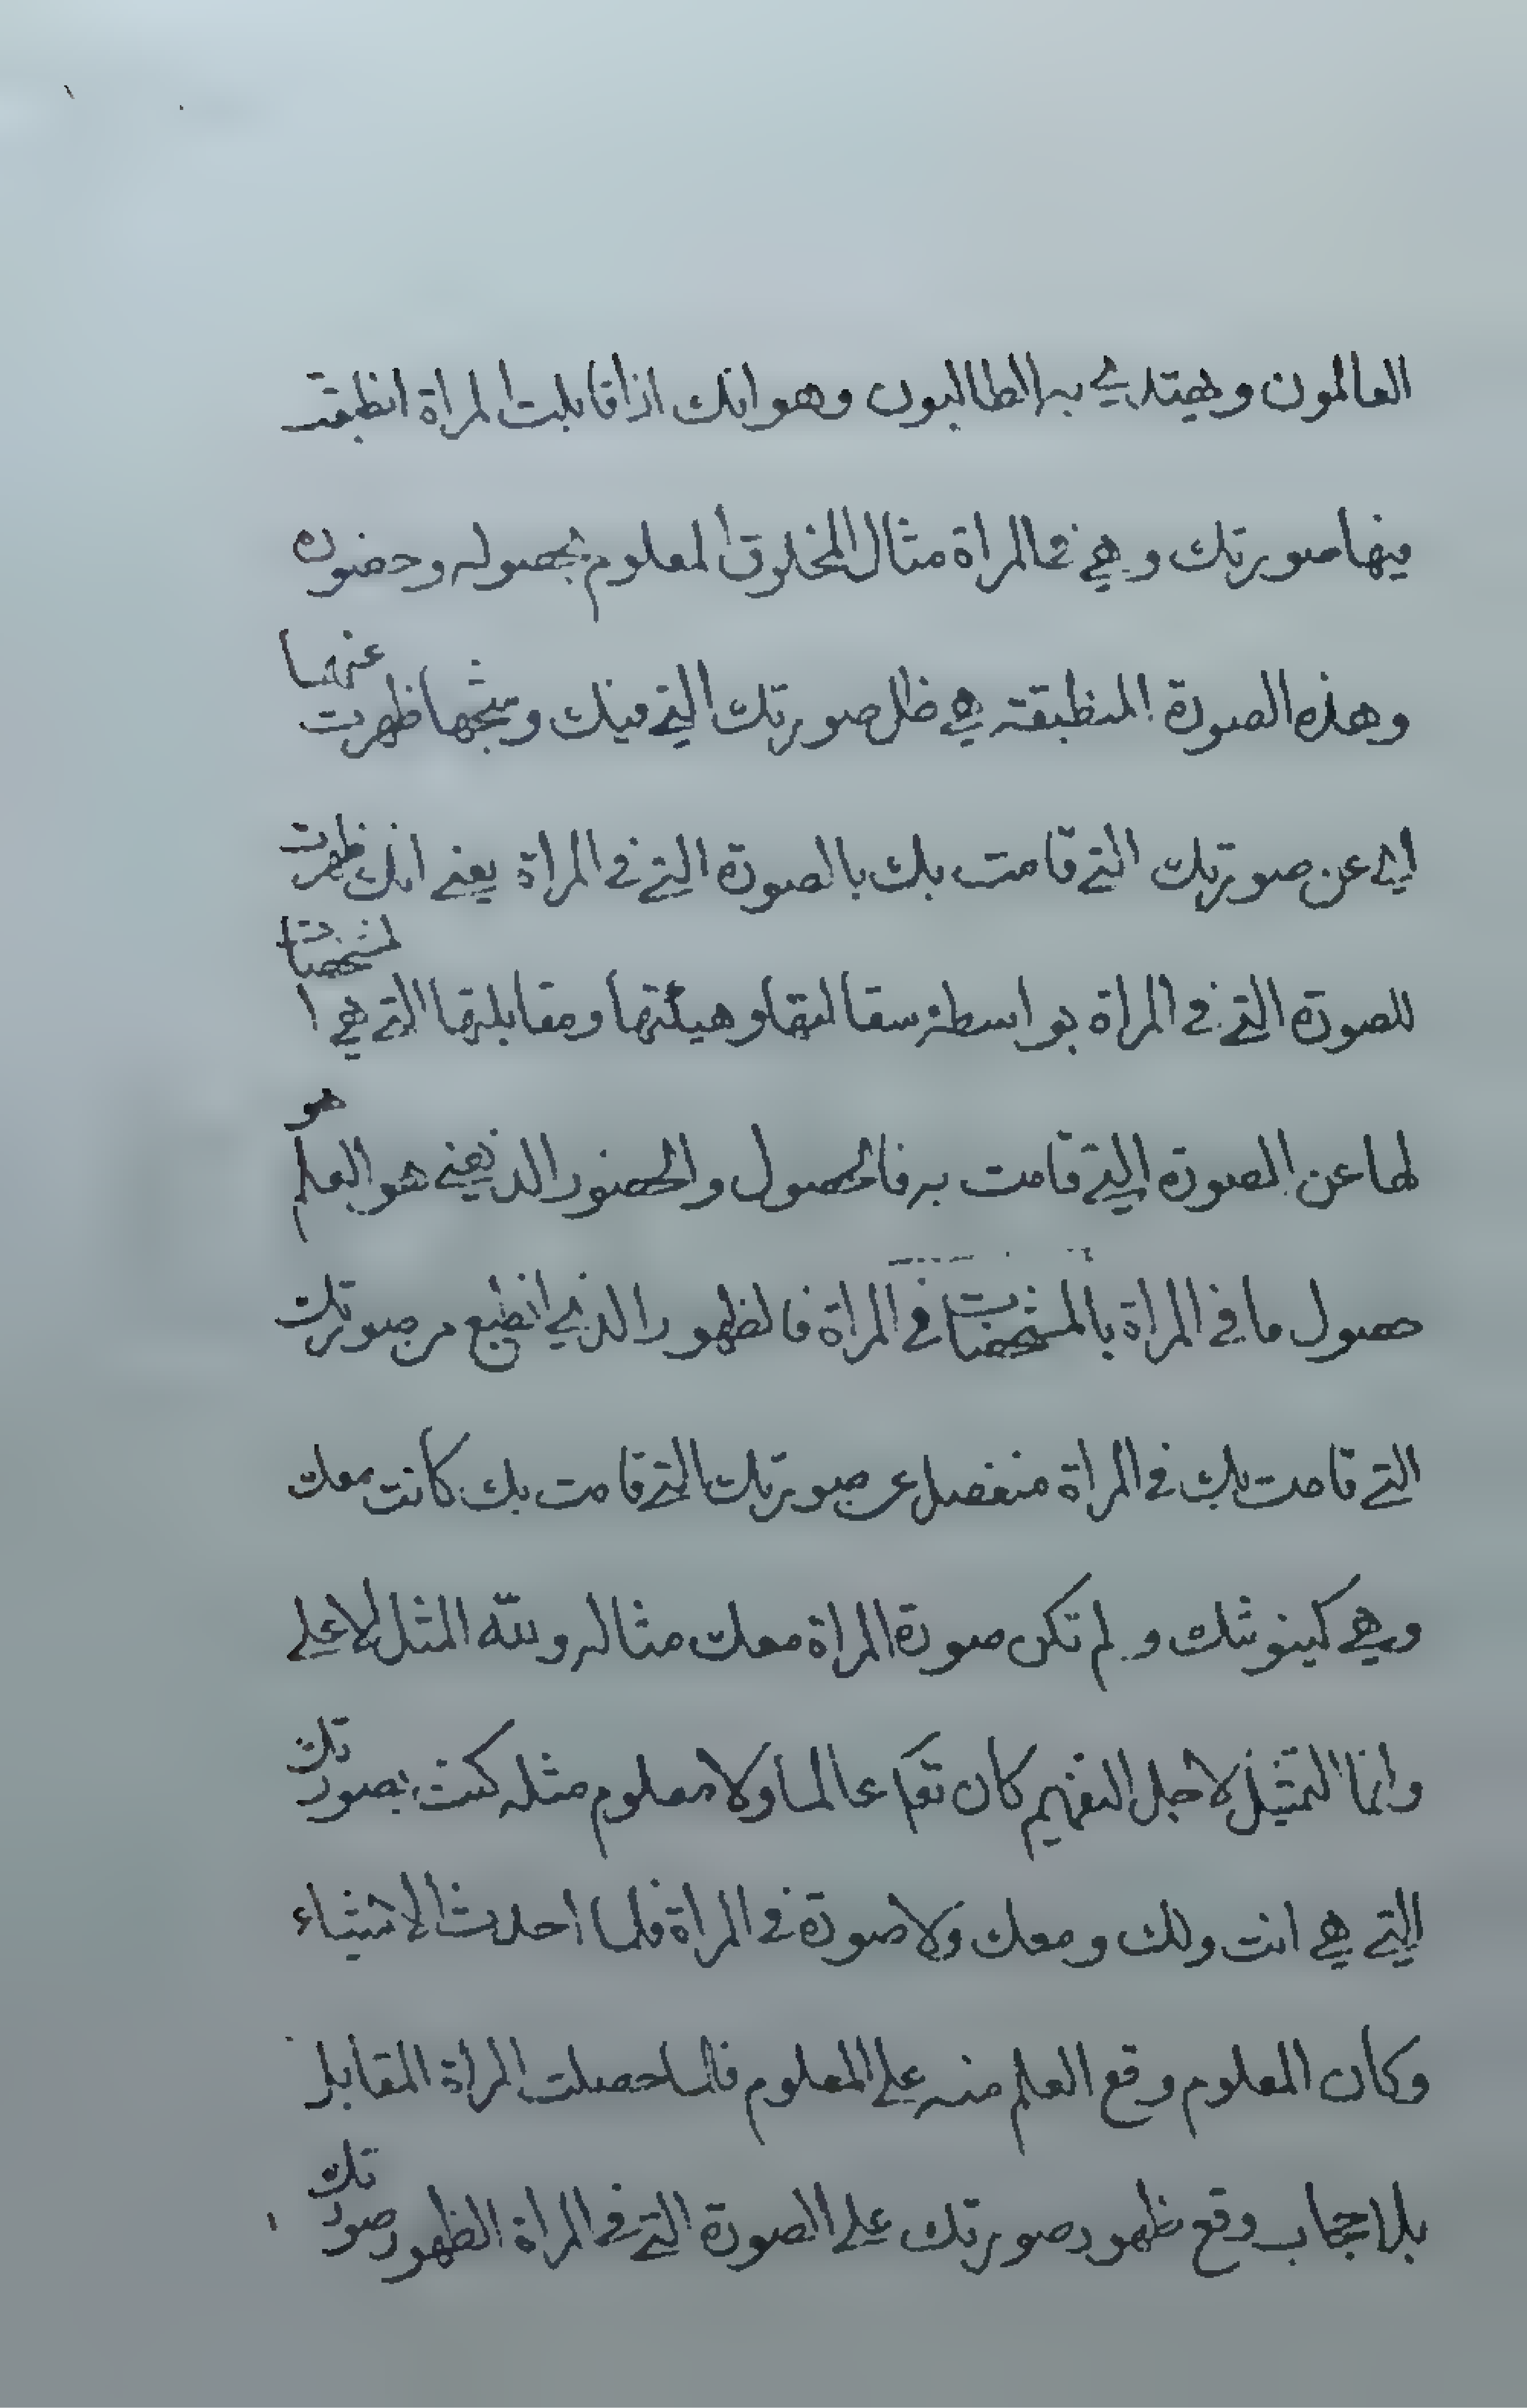 العالمون ويهتدي به الطالبون وهو انك اذا قابلت المراة انطبقت
فيها صورتك وهي في المراة مثال المخلوق المعلوم بحصوله وحضوره
وهذه الصورة المنطبقة هي ظل صورتك التي فيك وشبحها ظهرت عنها
اي عن صورتك التي قامت بك بالصورة التي في المراة يعني انك ظهرت
للصورة التي في المراة بواسطة سقالتها وهيئتها ومقابلتها التي هي المشخصات
لها عن الصورة التي قامت به فالحصول والحضور الذهني هو العلم هو
حصول ما في المراة بالمشخصات في المراة فالظهور الذي انطبع من صورتك
التي قامت بك في المراة منفصل عن صورتك التي قامت بك كانت معك
وهي كينونتك ولم تكن صورة المراة معك مثاله ولله المثل الاعلى
وانما التمثيل لاجل التفهيم كان تعالى عالما ولا معلوم مثله كنت بصورتك
التي هي انت ولك ومعك ولا صورة في المراة فلما احدث الاشياء
وكان المعلوم وقع العلم منه على المعلوم فلما حصلت المراة المقابل
بلا حجاب وقع ظهور صورتك على الصورة التي في المراة الظهور صورتك